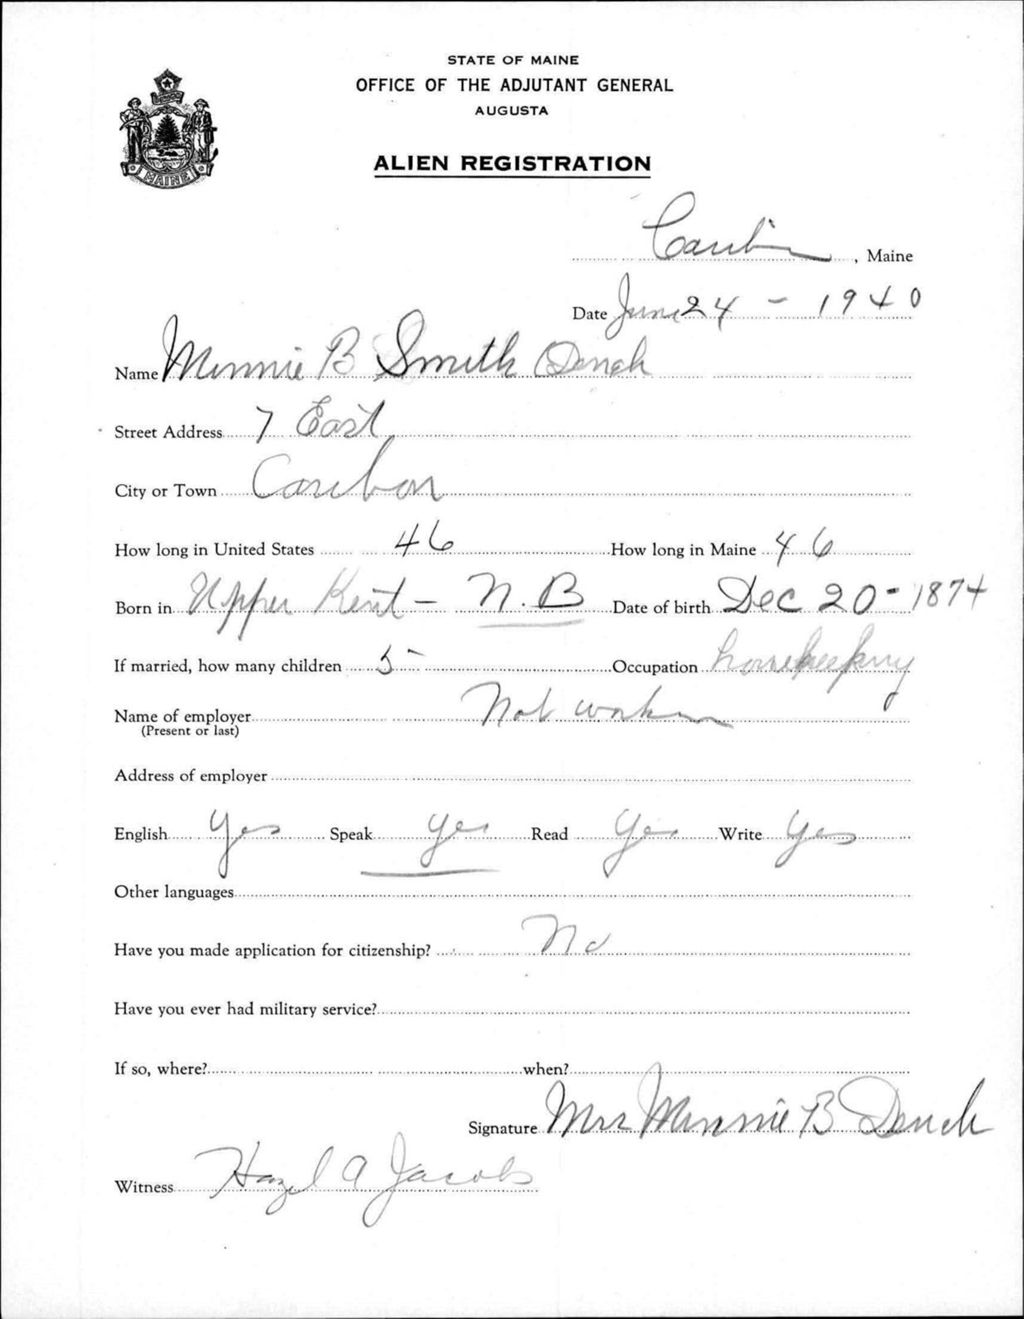 STATE OF MAINE
OFFICE OF THE ADJUTANT GENERAL
AUGUSTA
ALIEN REGISTRATION
MAINE
Caribou, Maine
Date June 24 - 1940
Name Minnie B Smith Dench
Street Address 7 East
City or Town Caribou
How long in United States 46 How long in Maine 46
Born in Upper Kent - N.B Date of birth Dec 20 - 1874
If married, how many children 5 - Occupation housekeeping
Name of employer Not workin
(Present or last)
Address of employer
English Yes Speak yes Read yes Write yes
Other languages
Have you made application for citizenship? No
Have you ever had military service?
If so, where? when?
Signature Mrs Minnie B Dench
Witness Hazel A Jacobs